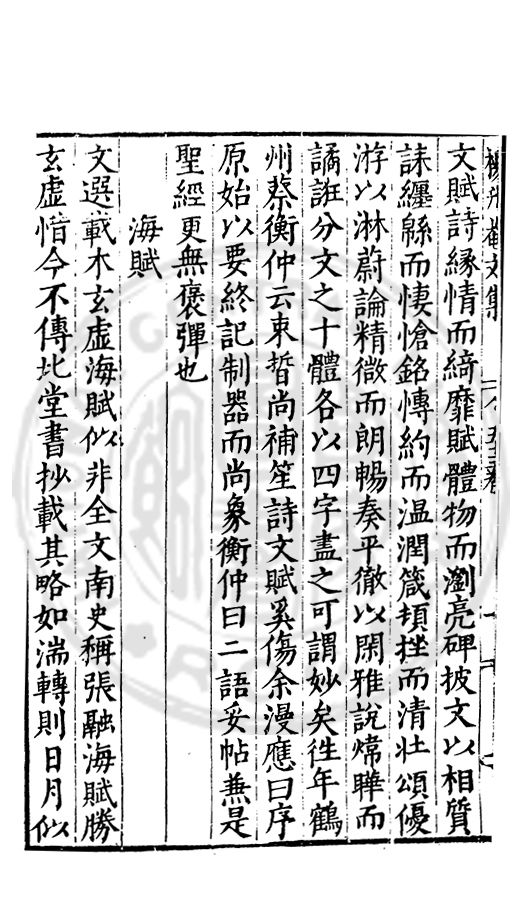 楊升菴文集 卷五十三
文賦詩緣情而綺靡賦體物而瀏亮碑披文以相質
誄纏緜而悽愴銘慱約而温潤箴頓挫而清壮頌優
游以淋蔚論精微而朗暢奏平徹以閑雅說煒曄而
譎誑分文之十體各以四字盡之可謂妙矣徃年鶴
州蔡衡仲云束晳尚補笙詩文賦奚傷余漫應曰序
原始以要終記制器而尚象衡仲曰二語妥帖兼是
聖經更無褒彈也
海賦
文選載木玄虛海賦似非全文南史稱張融海賦勝
玄虛惜今不傳北堂書抄載其略如湍轉則日月似